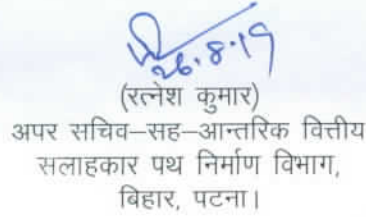 26.8.19
(रत्नेश कुमार)
अपर सचिव–सह–आन्तरिक वित्तीय
सलाहकार पथ निर्माण विभाग,
बिहार, पटना।